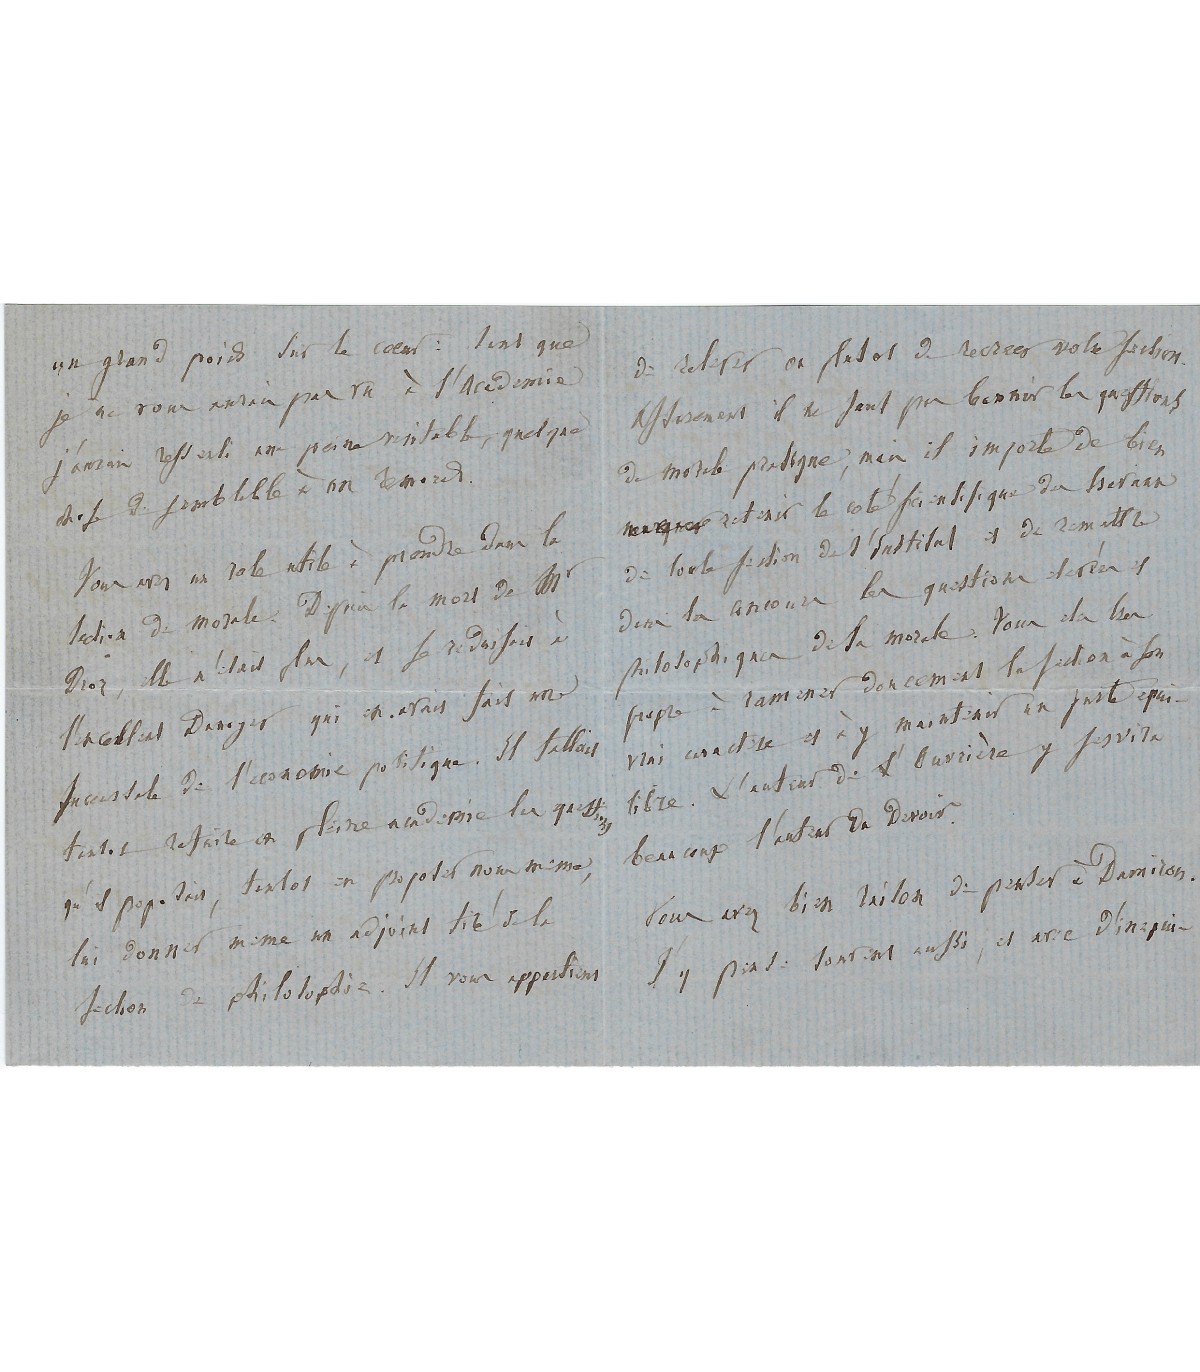 un grand poids sur le cœur : tant que
je ne vous aurais pas vu à l'Académie
j'aurais ressenti une peine veritable, quelque
chose de semblable à un remords.
Vous avez un role utile à prendre dans la
section de morale. Depuis la mort de Mr
Droz, elle n'etait plus, et se reduisait à
l'excellent Dunoyer qui en avait fait une
succursale de l'economie politique. Il fallait
tantot refaire en pleine academie les questions
qu'il proposait, tantot en proposer nous meme,
lui donner meme un adjoint tiré de la
section de philosophie. Il vous appartient
de relever ou plutot de recréer votre section.
Assurement il ne faut pas bannir les questions
de morale pratique, mais il importe de bien
retenir le coté scientifique des travaux
de toute section de l'Institut et de remettre
dans les concours les questions elevées et
philosophiques de la morale. Vous etes tres
propre à ramener doucement la section à son
vrai caractère et à y maintenir un juste equi-
libre. L'auteur de L'Ouvrière y servira
beaucoup l'auteur du Devoir.
Vous avez bien raison de penser à Damiron.
J'y pense souvent aussi, et avec d'inquie-